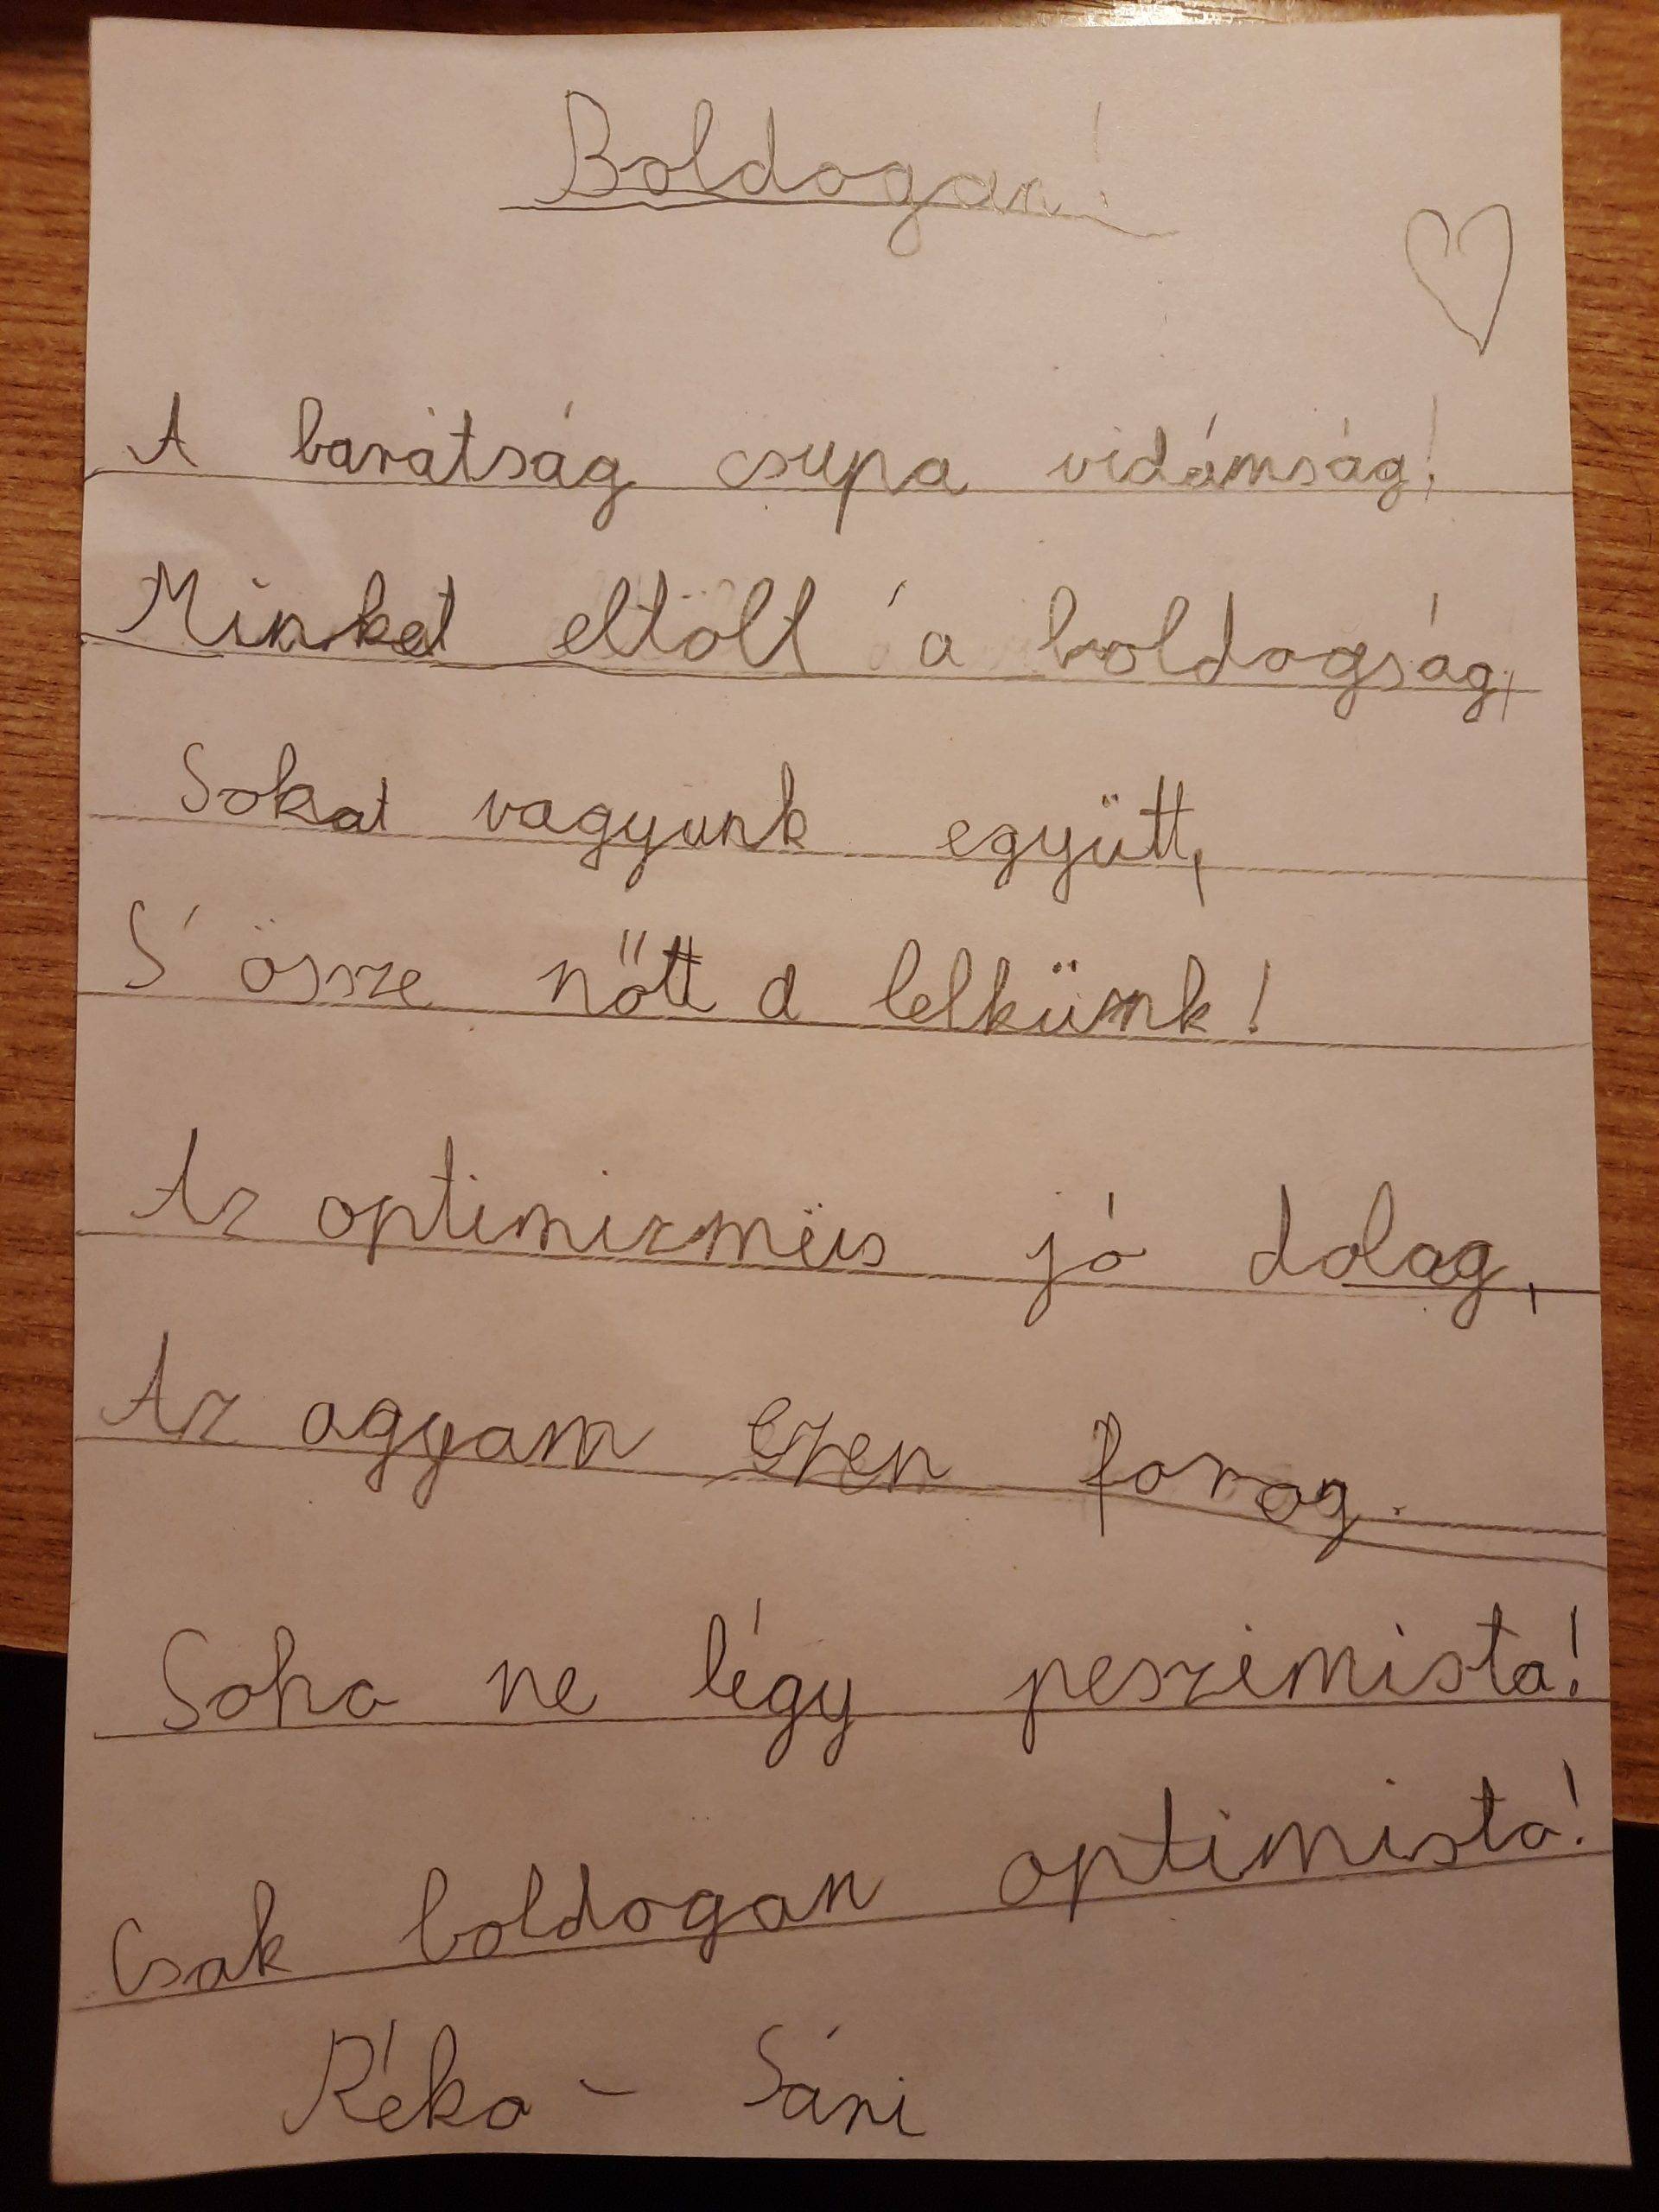 Boldogan!
A barátság csupa vidámság!
Minket eltölt a boldogság,
Sokat vagyunk együtt,
S' össze nőtt a lelkünk!
Az optimizmus jó dolag,
Az agyam ezen forog.
Soha ne légy peszimista!
Csak boldogan optimista!
Réka - Sári